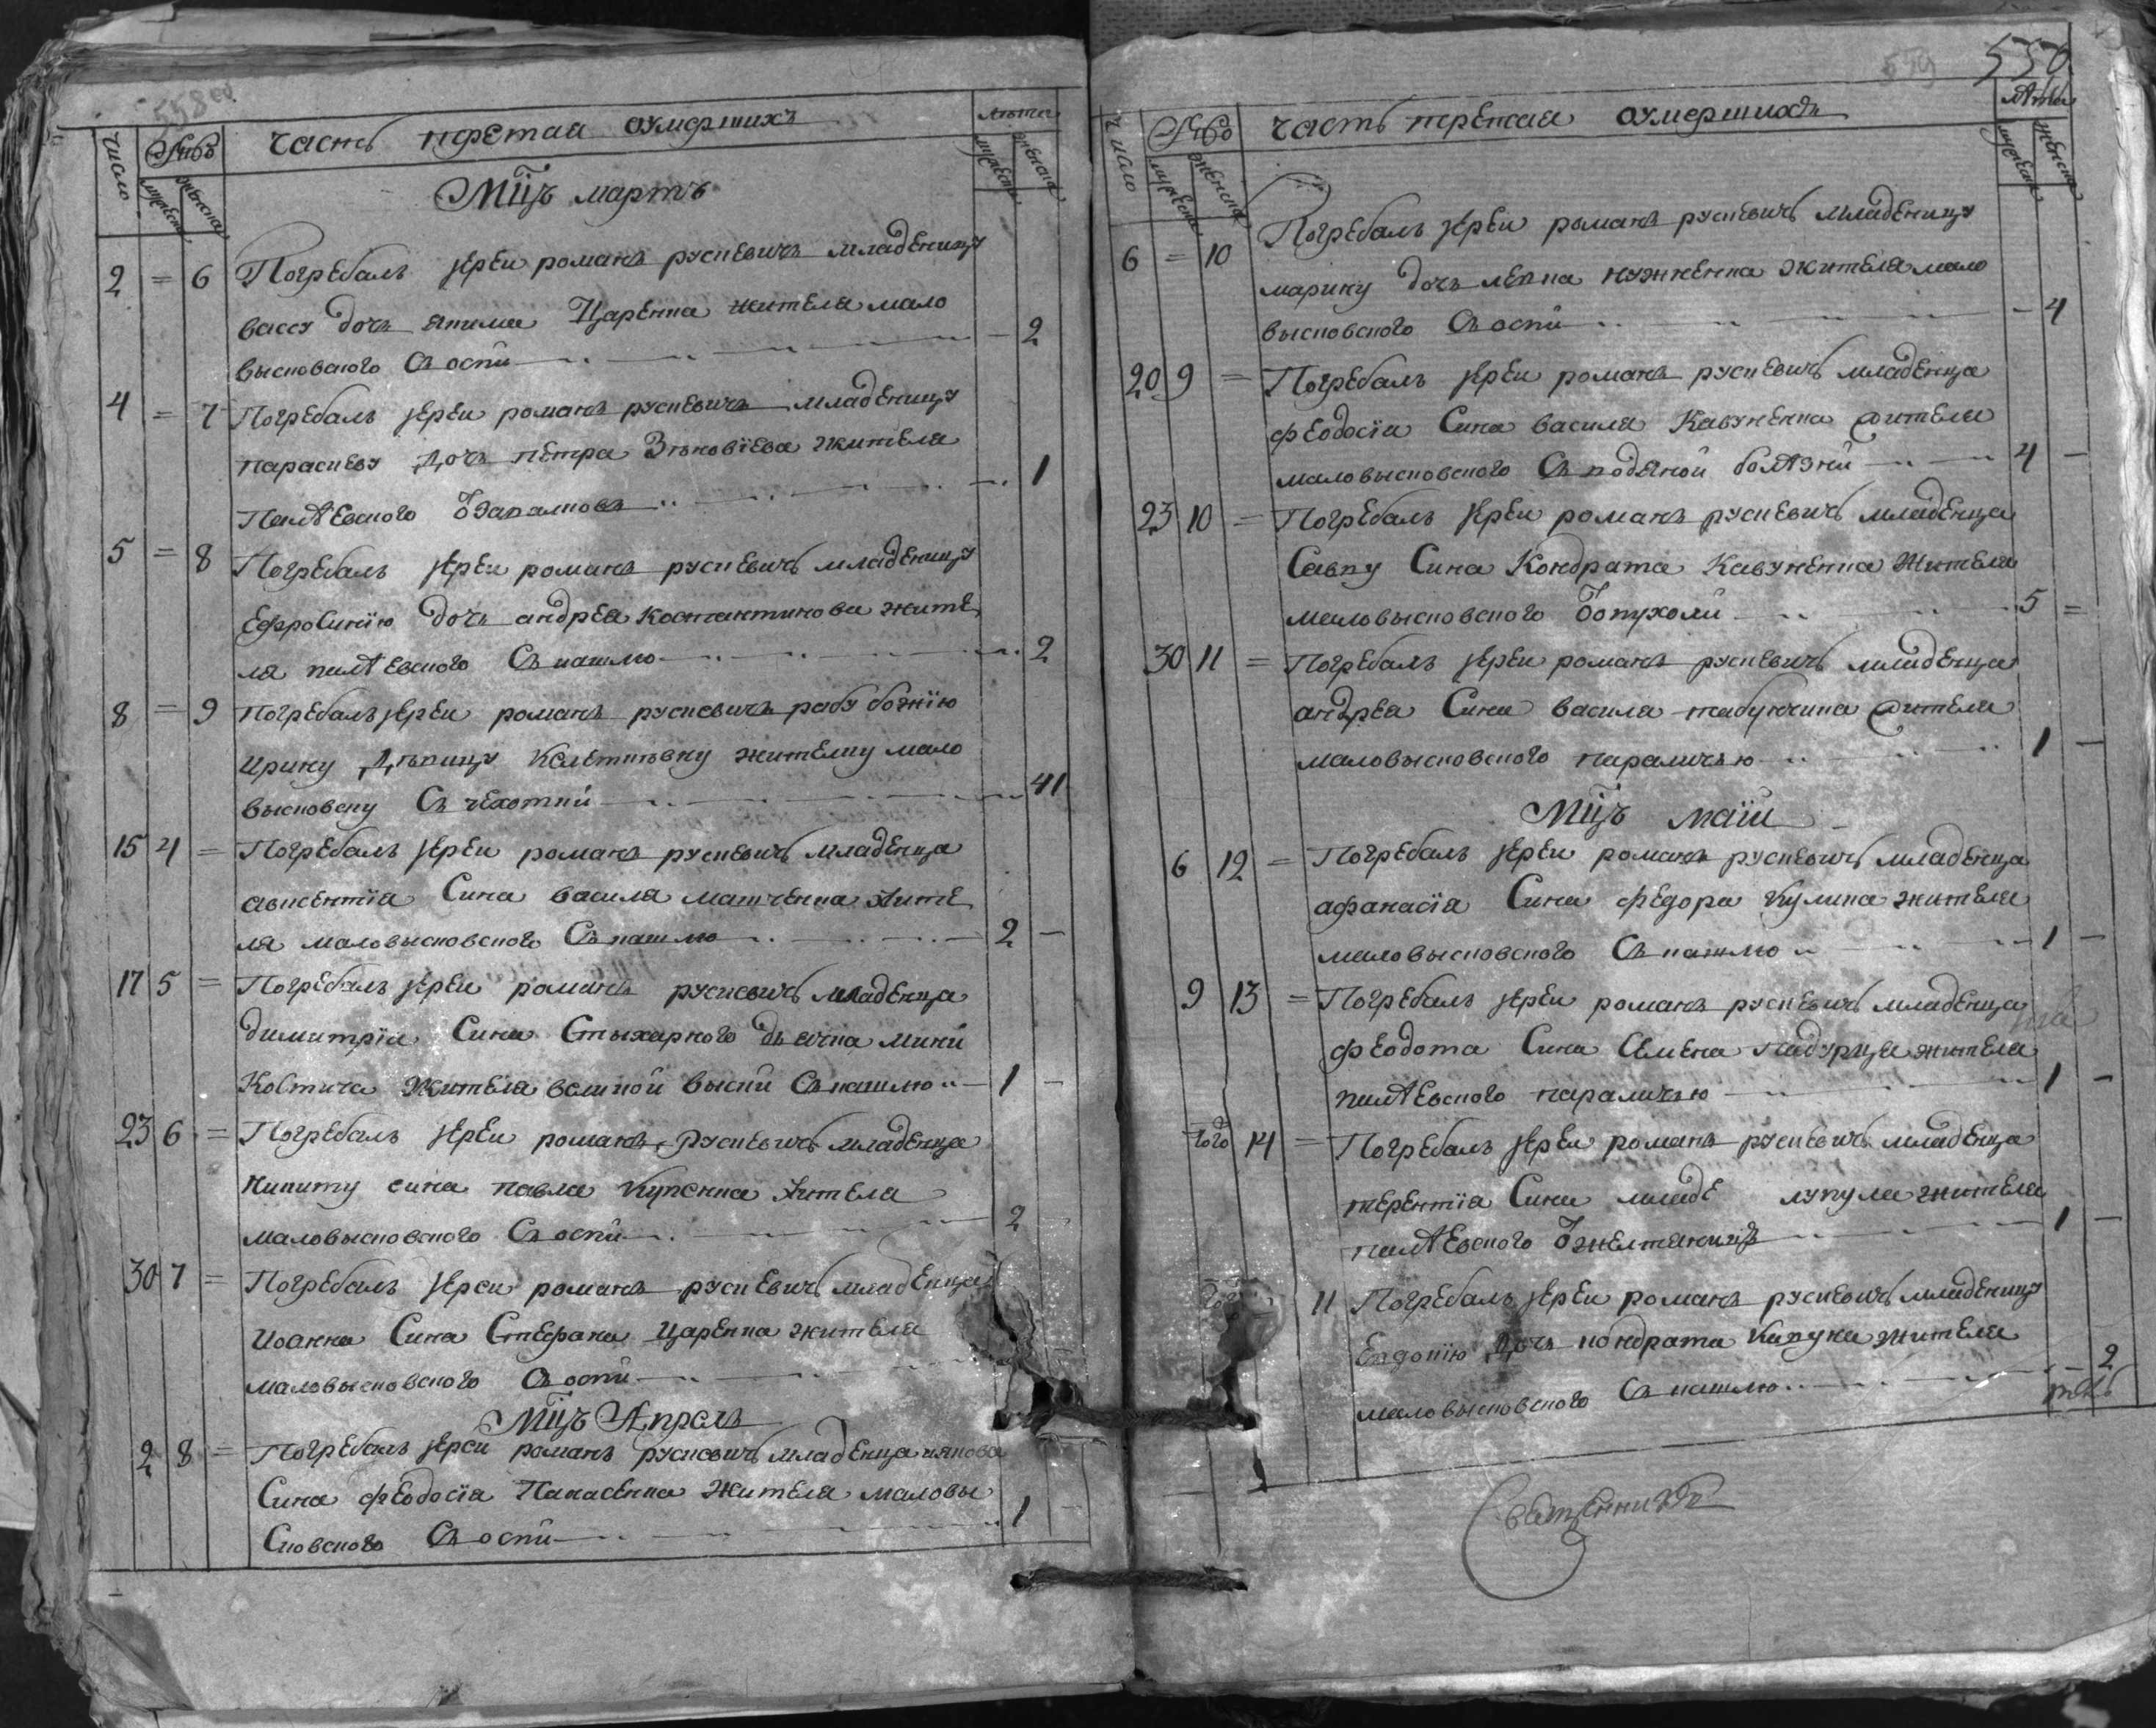 558 об
часть третая оумершихъ
лѣта
число
мужеска
женска
мужеска
женска
Мцъ мартъ
2 = 6 Погребалъ іерей романъ руспевичъ младеницу
вассу дочъ якима Царенка жителя мало
высковского Съ оспи - 2
4 = 7 Погребалъ іерей романъ руспевичъ младеницу
параскеву дочъ петра Зѣновіева жителя
1
5 = 8 Погребалъ іерей романъ руспевичъ младеницу
Ефросинію дочъ андрея Костантинова жите
ля палѣевского Съ кашлю 2
8 = 9 Погребалъ іерей романъ руспевичъ рабу божію
Ирину жителку мало
высковску Съ чехотки 41
15 4 = Погребалъ іерей романъ руспевичъ младенца
авксентіа Сина василя жите
ля маловысковского Съ кашлю 2 -
17 5 = Погребалъ іерей романъ руспевичъ младенца
димитріа Сина Стыхарного дьячка
Костича жителя великой выски Съ кашлю 1 -
23 6 = Погребалъ іерей романъ руспевичъ младенца
Никиту сина павла Купенка жителя
маловысковского Съ оспи 2
30 7 = Погребалъ іерей романъ руспевичъ младенца
Иоанна Сина Стефана Царенка жителя
маловысковского Съ оспи
Мцъ Апрель
2 8 = Погребалъ іерей романъ руспевичъ младенца иякова
Сина феодосіа Панасенка жителя маловы
сковского Съ оспи 1 -
559 550
часть третая оумершихъ
лѣта
число
мужеска
женска
мужеска
женска
6 = 10 Погребалъ іерей романъ руспевичъ младеницу
марину дочъ жителя мало
высковского Съ оспи - 4
20 9 = Погребалъ іерей романъ руспевичъ младенца
феодосіа Сина василя Кавуненка жителя
маловысковского Съ болѣзни 4 -
23 10 = Погребалъ іерей романъ руспевичъ младенца
Савку Сина Кондрата Кавуненка жителя
маловысковского 5 =
30 11 = Погребалъ іерей романъ руспевичъ младенца
андрея Сина василя табунчика жителя
маловысковского параличью 1 -
Мцъ маїи
6 12 = Погребалъ іерей романъ руспевичъ младенца
афанасіа Сина федора Кулика жителя
маловысковского Съ кашлю 1 -
9 13 = Погребалъ іерей романъ руспевичъ младенца
феодота Сина Семена жителя
палѣевского параличью 1 -
того 14 = Погребалъ іерей романъ руспевичъ младенца
терентіа Сина лупула жителя
палѣевского 1 -
того 11 Погребалъ іерей романъ руспевичъ младеницу
Евдокію дочъ кондрата жителя
маловысковского Съ кашлю - 2
Священникъ